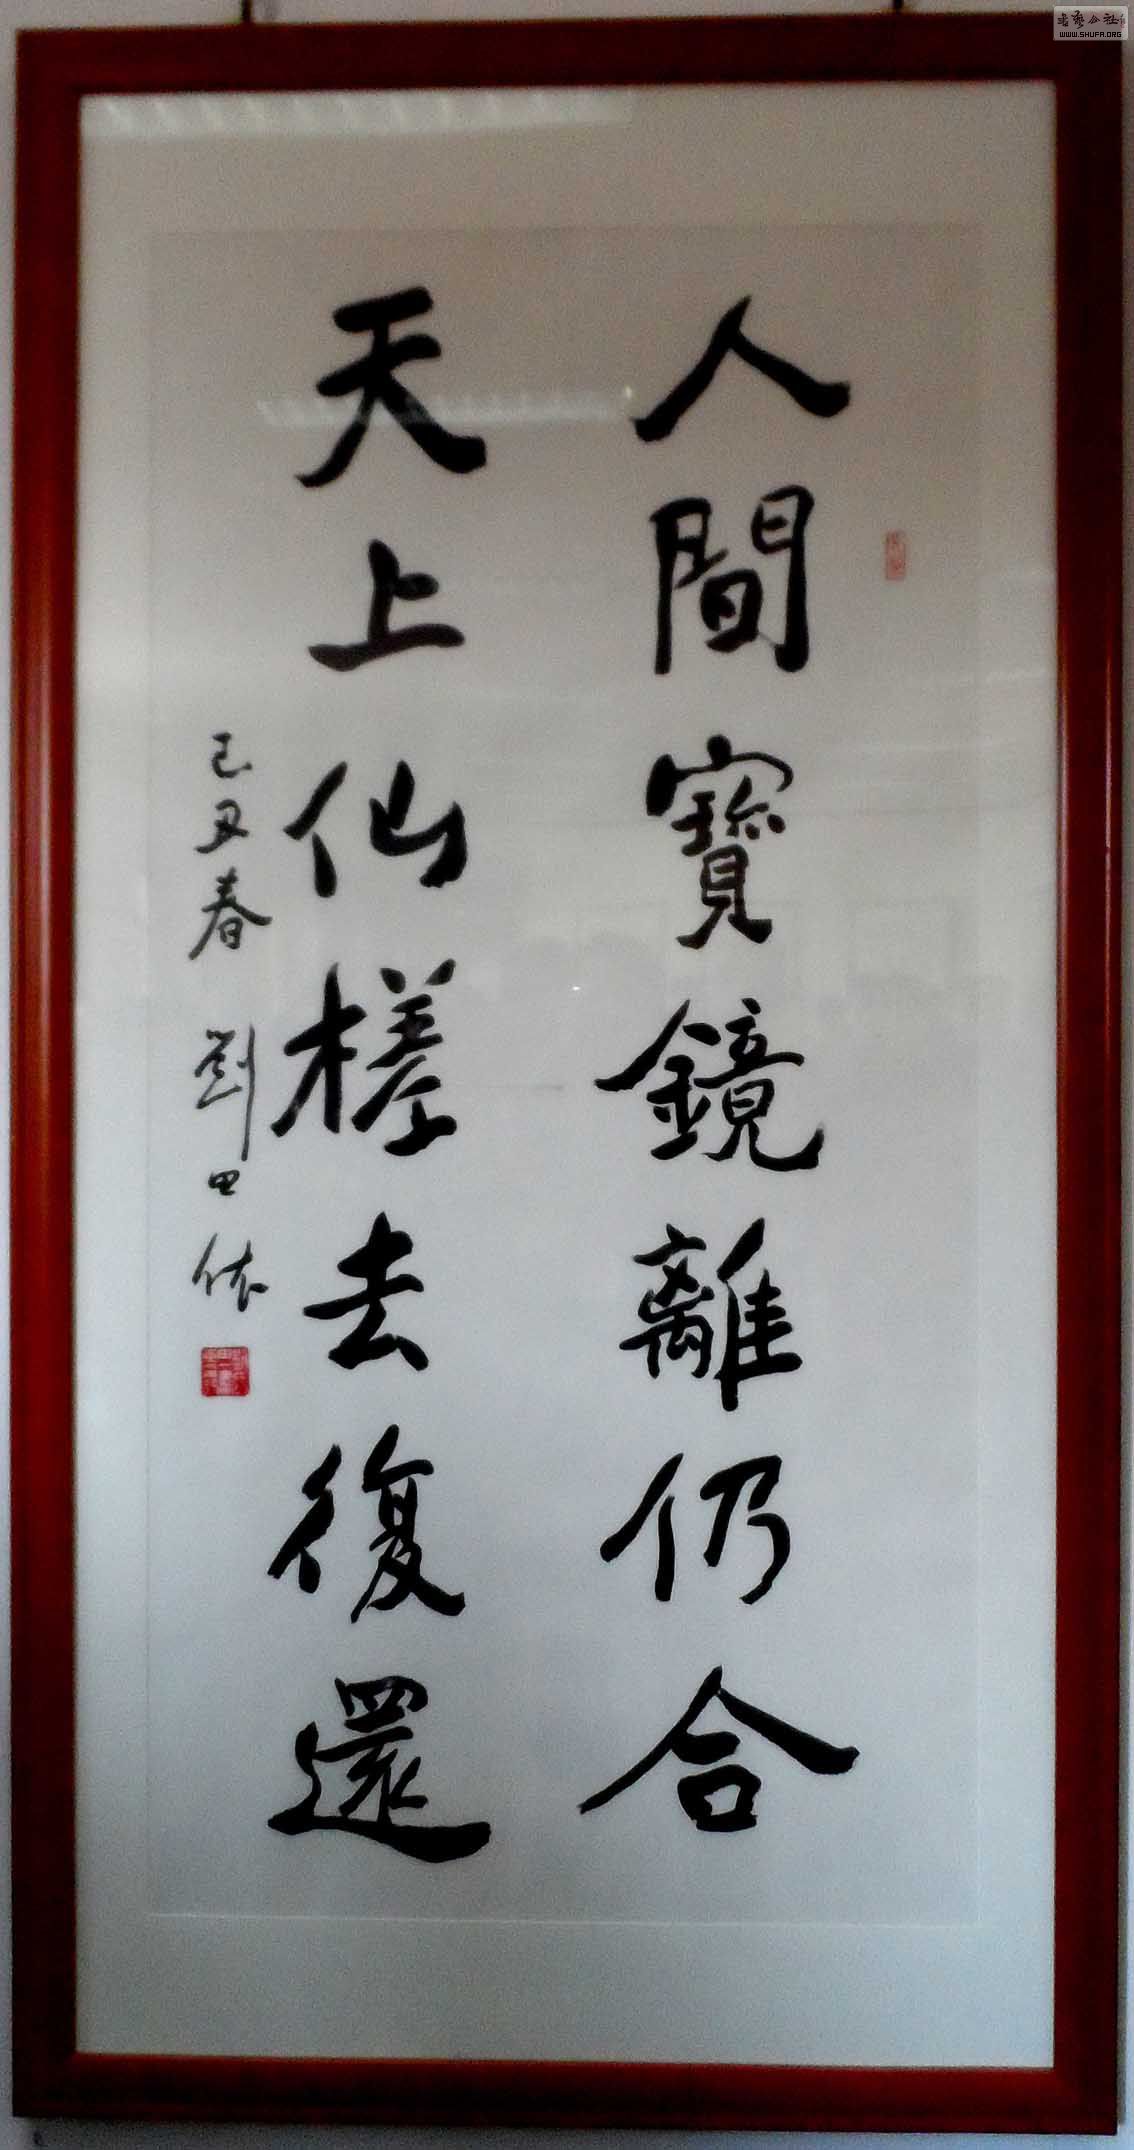 人間寶鏡離仍合
天上仙槎去復還
己丑春 劉田依
書藝公社
WWW.SHUFA.ORG